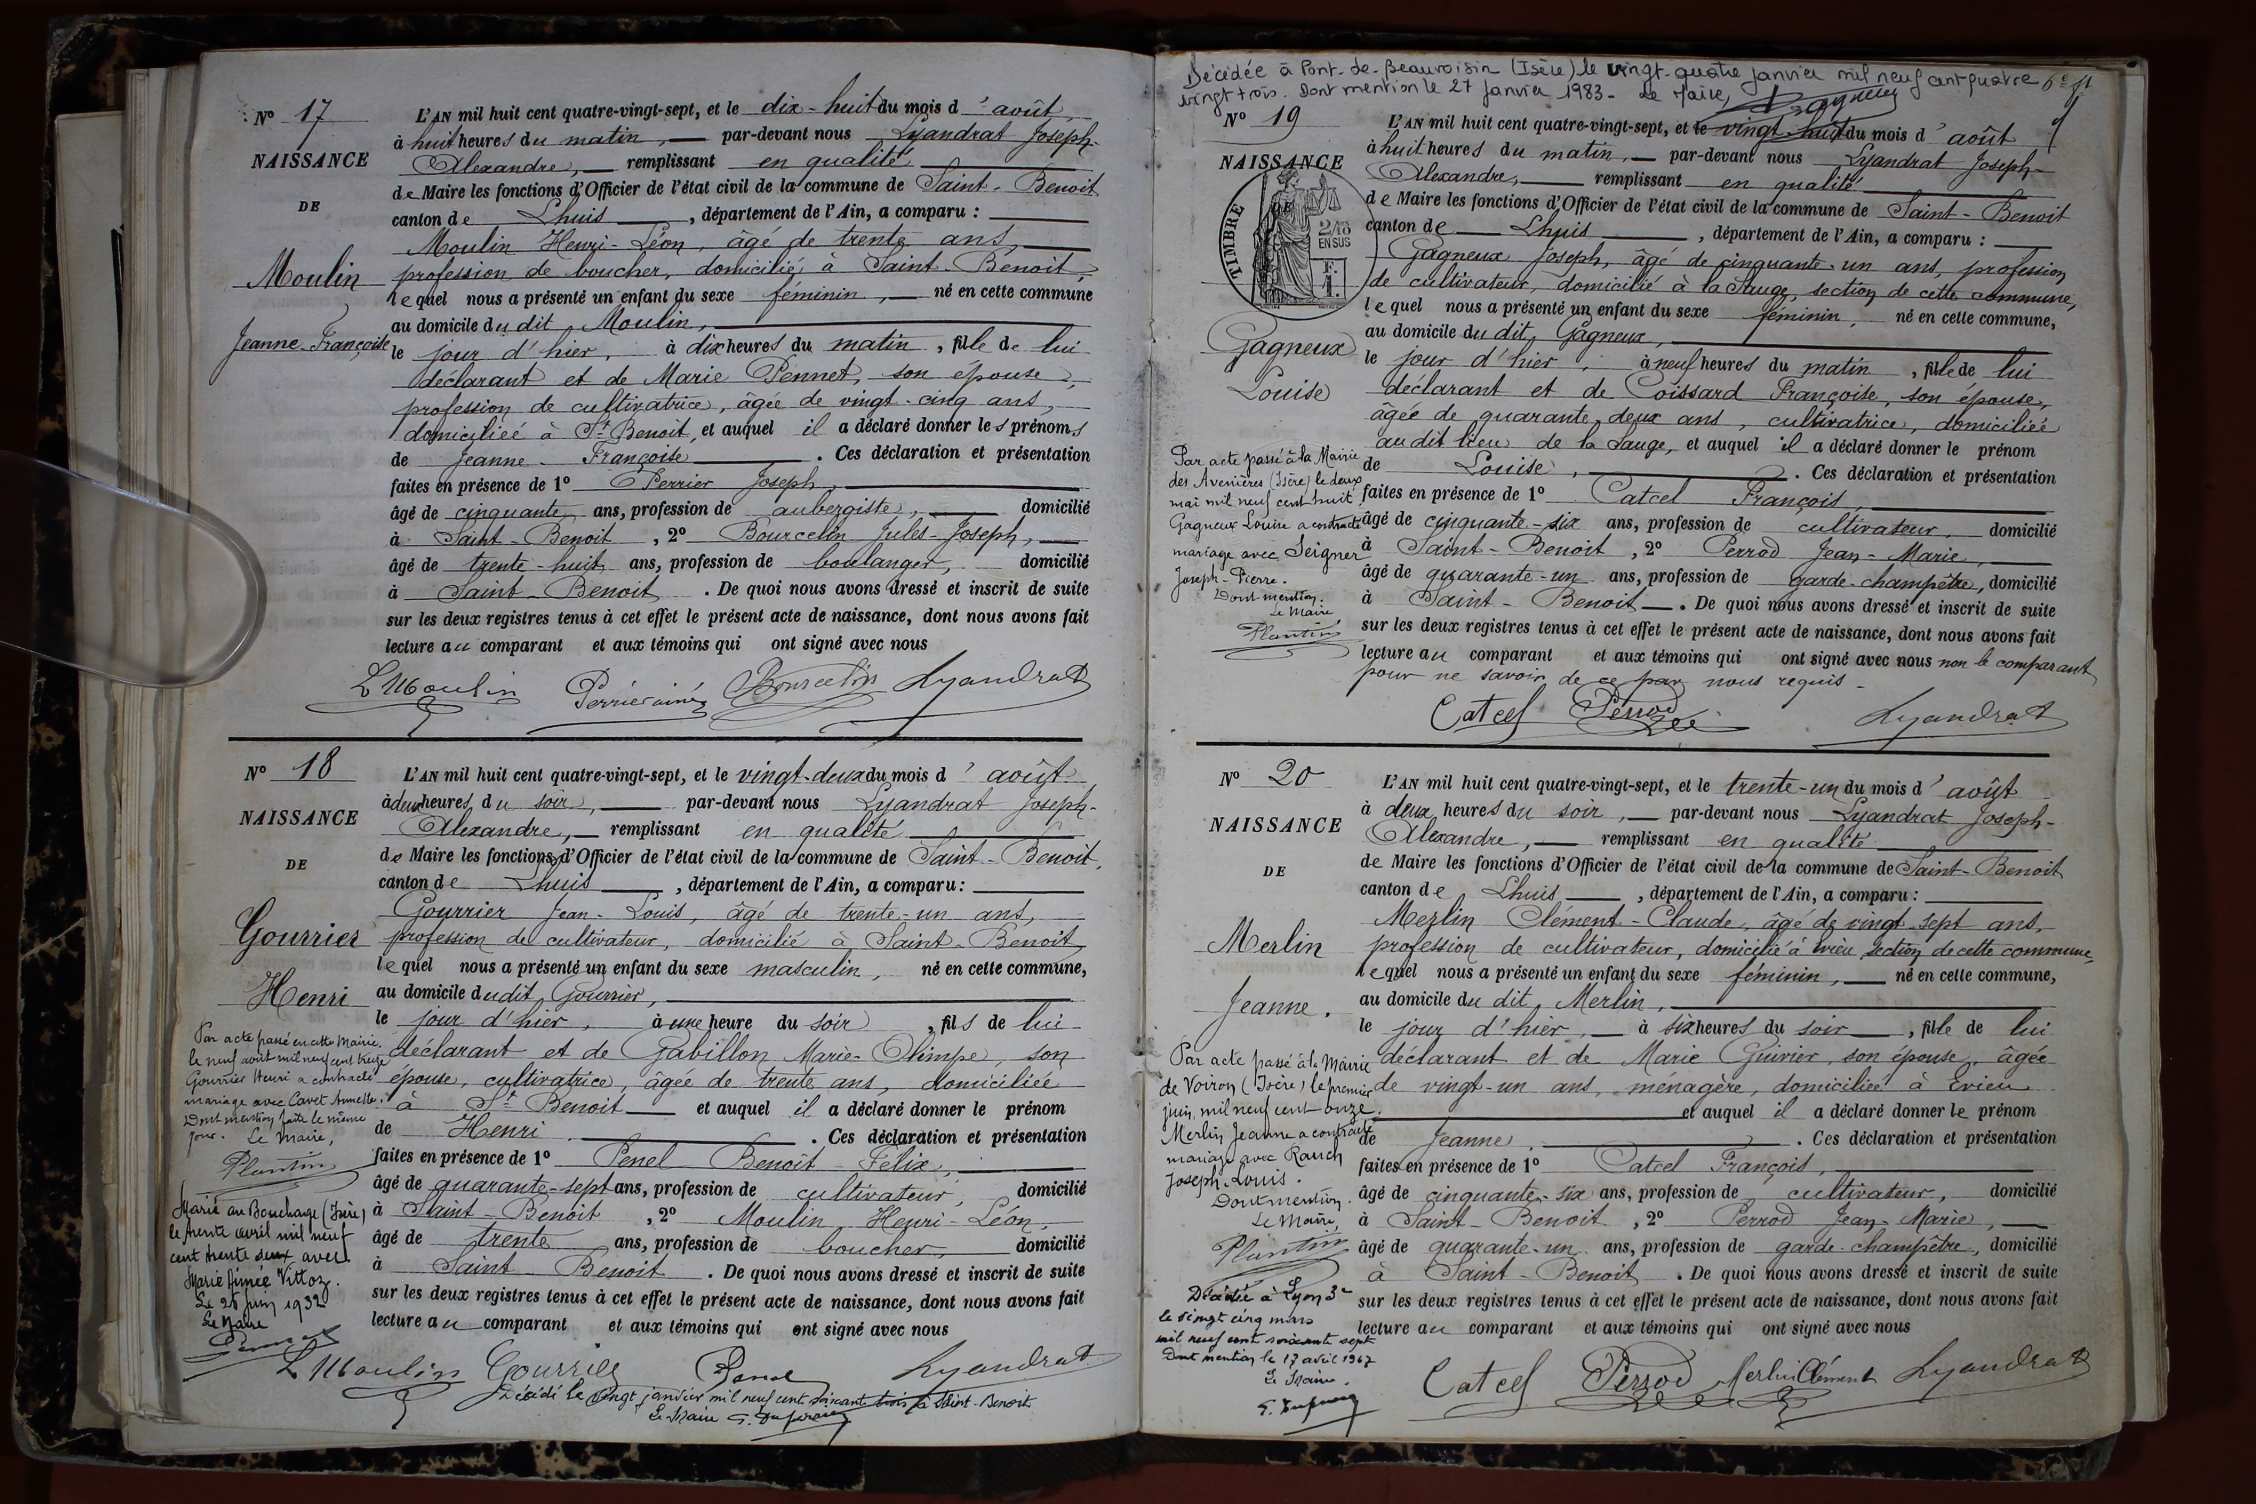 N° 17
NAISSANCE
DE
Moulin
Jeanne-Françoise
L'AN mil huit cent quatre-vingt-sept, et le dix-huit du mois d'août
à huit heures du matin, par-devant nous Lyandrat Joseph-
Alexandre, remplissant en qualité
de Maire les fonctions d'Officier de l'état civil de la commune de Saint-Benoit
canton de Lhuis, département de l'Ain, a comparu :
Moulin Henri-Léon, âgé de trente ans,
profession de boucher, domicilié à Saint-Benoit,
lequel nous a présenté un enfant du sexe féminin, né en cette commune
au domicile du dit Moulin,
le jour d'hier, à dix heures du matin, fille de lui
déclarant et de Marie Pennet, son epouse,
profession de cultivatrice, âgée de vingt-cinq ans,
domiciliée à St Benoit, et auquel il a déclaré donner les prénoms
de Jeanne-Françoise. Ces déclaration et présentation
faites en présence de 1° Perrier Joseph,
âgé de cinquante ans, profession de aubergiste, domicilié
à Saint-Benoit, 2° Bourcelin Jules-Joseph,
âgé de trente-huit ans, profession de boulanger, domicilié
à Saint-Benoit. De quoi nous avons dressé et inscrit de suite
sur les deux registres tenus à cet effet le présent acte de naissance, dont nous avons fait
lecture au comparant et aux témoins qui ont signé avec nous
L Moulin Perrier ainé Bourcelin Lyandrat
N° 18
NAISSANCE
DE
Gourrier
Henri
Par acte passé en cette Mairie
le neuf août mil neuf cent treize
Gourrier Henri a contracté
mariage avec Cavet Armelle.
Dont mention faite le même
jour. Le Maire,
Plantin
Marié au Bouchage (Isère)
le trente avril mil neuf
cent trente deux avec
Marie Aimée Vittoz.
Le 26 juin 1932
Le Maire
L'AN mil huit cent quatre-vingt-sept, et le vingt-deux du mois d'août
à deux heures du soir, par-devant nous Lyandrat Joseph-
Alexandre, remplissant en qualité
de Maire les fonctions d'Officier de l'état civil de la commune de Saint-Benoit,
canton de Lhuis, département de l'Ain, a comparu :
Gourrier Jean-Louis, âgé de trente-un ans,
profession de cultivateur, domicilié à Saint-Benoit,
lequel nous a présenté un enfant du sexe masculin, né en cette commune,
au domicile du dit Gourrier,
le jour d'hier, à une heure du soir, fils de lui
déclarant et de Gabillon Marie-Olimpe, son
épouse, cultivatrice, âgée de trente ans, domiciliée
à St Benoit et auquel il a déclaré donner le prénom
de Henri. Ces déclaration et présentation
faites en présence de 1° Penel Benoît-Félix,
âgé de quarante-sept ans, profession de cultivateur, domicilié
à Saint-Benoit, 2° Moulin Henri-Léon,
âgé de trente ans, profession de boucher, domicilié
à Saint-Benoit. De quoi nous avons dressé et inscrit de suite
sur les deux registres tenus à cet effet le présent acte de naissance, dont nous avons fait
lecture au comparant et aux témoins qui ont signé avec nous
L Moulin Gourrier Penel Lyandrat
Décédé le vingt janvier mil neuf cent soixante trois à Saint-Benoit.
Le Maire
Décédée à Pont-de-Beauvoisin (Isère) le vingt-quatre janvier mil neuf cent quatre
vingt trois. Dont mention le 27 janvier 1983- Le Maire,
N° 19
NAISSANCE
DE
TIMBRE
2/10
EN SUS
Gagneux
Louise
Par acte passé à la Mairie
des Avenières (Isère) le deux
mai mil neuf cent huit
Gagneux Louise a contracté
mariage avec Seigner
Joseph-Pierre.
Dont mention.
Le Maire
Plantin
L'AN mil huit cent quatre-vingt-sept, et le vingt-huit du mois d'août
à huit heures du matin, par-devant nous Lyandrat Joseph-
Alexandre, remplissant en qualité
de Maire les fonctions d'Officier de l'état civil de la commune de Saint-Benoit
canton de Lhuis, département de l'Ain, a comparu :
Gagneux Joseph, âgé de cinquante-un ans, profession
de cultivateur, domicilié à la Sauge, section de cette commune,
lequel nous a présenté un enfant du sexe féminin, né en cette commune,
au domicile du dit Gagneux,
le jour d'hier, à neuf heures du matin, fille de lui
déclarant et de Coissard Françoise, son épouse,
âgée de quarante-deux ans, cultivatrice, domiciliée
au dit lieu de la Sauge, et auquel il a déclaré donner le prénom
de Louise,. Ces déclaration et présentation
faites en présence de 1° Catcel François,
âgé de cinquante-six ans, profession de cultivateur, domicilié
à Saint-Benoit, 2° Perrod Jean-Marie,
âgé de quarante-un ans, profession de garde-champêtre, domicilié
à Saint-Benoit. De quoi nous avons dressé et inscrit de suite
sur les deux registres tenus à cet effet le présent acte de naissance, dont nous avons fait
lecture au comparant et aux témoins qui ont signé avec nous non le comparant
pour ne savoir de ce par nous requis-
Catcel Perrod Lyandrat
N° 20
NAISSANCE
DE
Merlin
Jeanne.
Par acte passé à la Mairie
de Voiron (Isère) le premier
juin mil neuf cent onze.
Merlin Jeanne a contracté
mariage avec Rauch
Joseph-Louis.
Dont mention.
Le Maire,
Plantin
Décédée à Lyon 3e
le vingt cinq mars
mil neuf cent soixante sept
Dont mention le 17 avril 1967
Le Maire.
L'AN mil huit cent quatre-vingt-sept, et le trente-un du mois d'août
à deux heures du soir, par-devant nous Lyandrat Joseph-
Alexandre, remplissant en qualité
de Maire les fonctions d'Officier de l'état civil de la commune de Saint-Benoit
canton de Lhuis, département de l'Ain, a comparu :
Merlin Clément-Claude, âgé de vingt-sept ans,
profession de cultivateur, domicilié à Evieu, section de cette commune,
lequel nous a présenté un enfant du sexe féminin, né en cette commune,
au domicile du dit Merlin,
le jour d'hier, à six heures du soir, fille de lui
déclarant et de Marie Guirier, son épouse, âgée
de vingt-un ans, ménagère, domiciliée à Evieu
et auquel il a déclaré donner le prénom
de Jeanne. Ces déclaration et présentation
faites en présence de 1° Catcel François,
âgé de cinquante-six ans, profession de cultivateur, domicilié
à Saint-Benoit, 2° Perrod Jean-Marie,
âgé de quarante-un ans, profession de garde-champêtre, domicilié
à Saint-Benoit. De quoi nous avons dressé et inscrit de suite
sur les deux registres tenus à cet effet le présent acte de naissance, dont nous avons fait
lecture au comparant et aux témoins qui ont signé avec nous
Catcel Perrod Merlin Clément Lyandrat